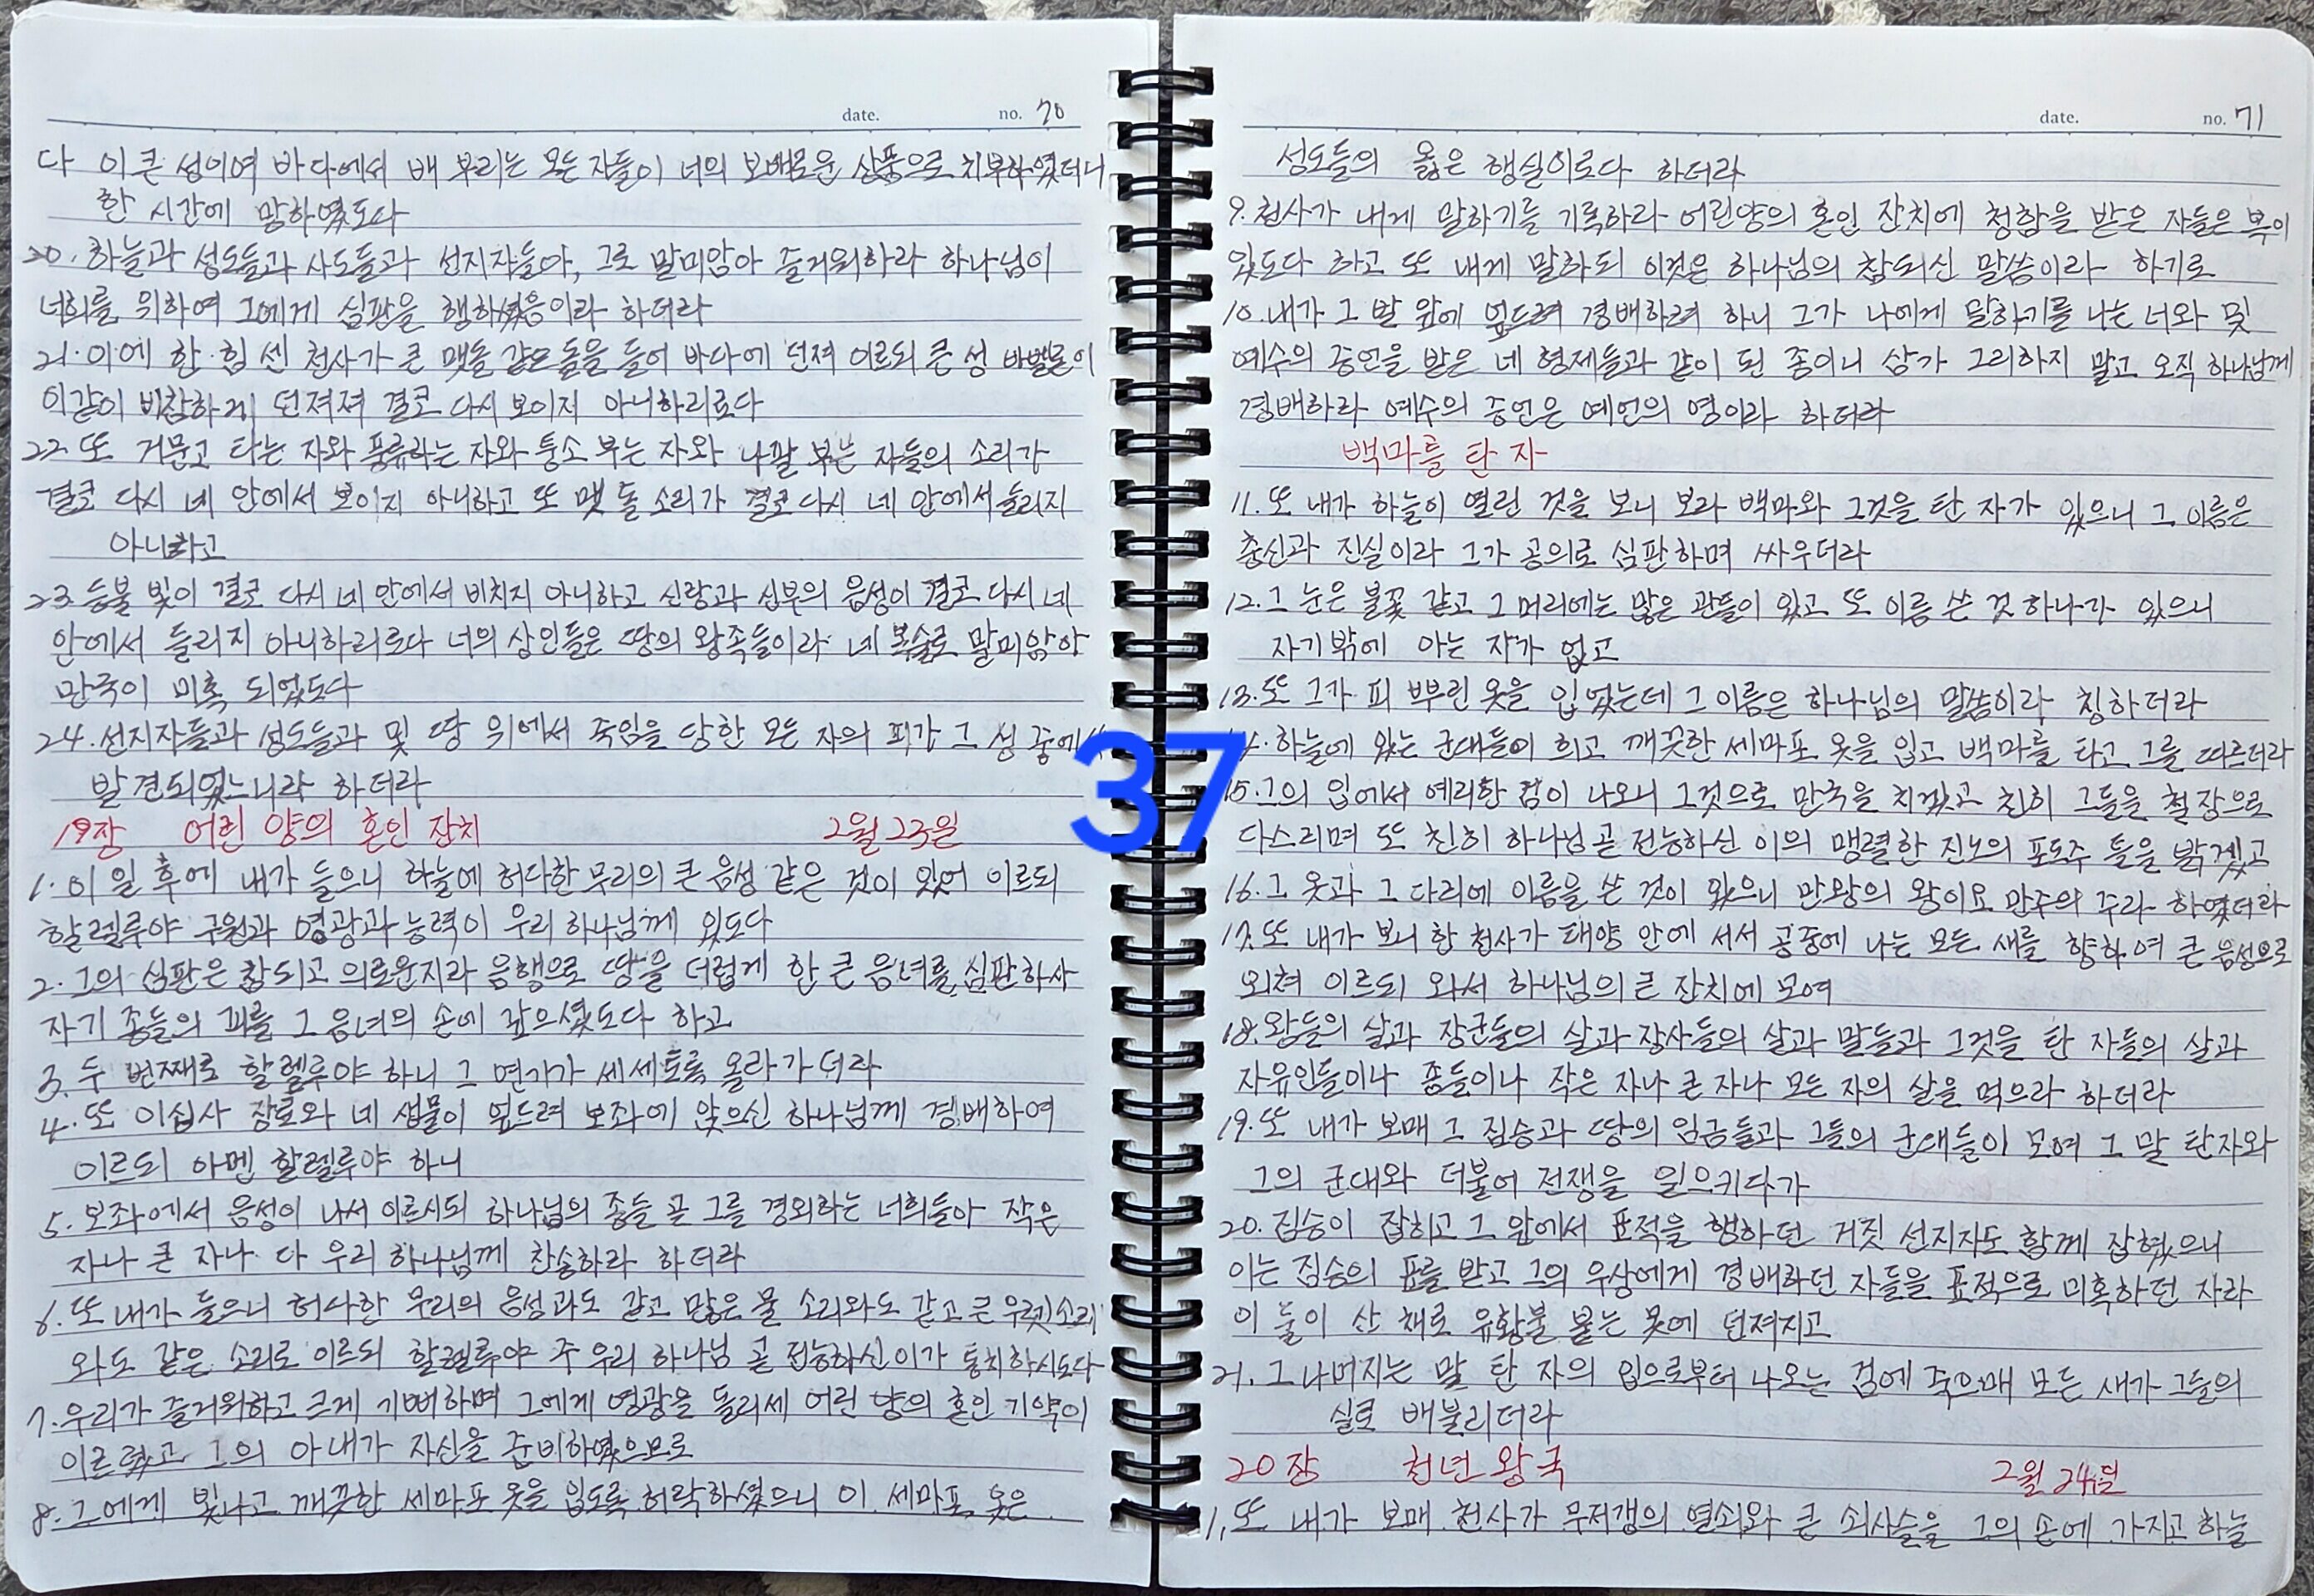 date. no. 70
다 이 큰 성이여 바다에서 배 부리는 모든 자들이 너의 보배로운 상품으로 치부하였더니
한 시간에 망하였도다
20. 하늘과 성도들과 사도들과 선지자들아, 그로 말미암아 즐거워하라 하나님이
너희를 위하여 그에게 심판을 행하셨음이라 하더라
21. 이에 한 힘 센 천사가 큰 맷돌 같은 돌을 들어 바다에 던져 이르되 큰 성 바벨론이
이같이 비참하게 던져져 결코 다시 보이지 아니하리로다
22. 또 거문고 타는 자와 풍류하는 자와 퉁소 부는 자와 나팔 부는 자들의 소리가
결코 다시 네 안에서 보이지 아니하고 또 맷돌 소리가 결코 다시 네 안에서 들리지
아니하고
23. 등불 빛이 결코 다시 네 안에서 비치지 아니하고 신랑과 신부의 음성이 결코 다시 네
안에서 들리지 아니하리로다 너의 상인들은 땅의 왕족들이라 네 복술로 말미암아
만국이 미혹 되었도다
24. 선지자들과 성도들과 및 땅 위에서 죽임을 당한 모든 자의 피가 그 성 중에서
발견되었느니라 하더라
19장 어린 양의 혼인 잔치 2월 23일
1. 이 일 후에 내가 들으니 하늘에 허다한 무리의 큰 음성 같은 것이 있어 이르되
할렐루야 구원과 영광과 능력이 우리 하나님께 있도다
2. 그의 심판은 참되고 의로운지라 음행으로 땅을 더럽게 한 큰 음녀를 심판하사
자기 종들의 피를 그 음녀의 손에 갚으셨도다 하고
3. 두 번째로 할렐루야 하니 그 연기가 세세토록 올라가더라
4. 또 이십사 장로와 네 생물이 엎드려 보좌에 앉으신 하나님께 경배하여
이르되 아멘 할렐루야 하니
5. 보좌에서 음성이 나서 이르시되 하나님의 종들 곧 그를 경외하는 너희들아 작은
자나 큰 자나 다 우리 하나님께 찬송하라 하더라
6. 또 내가 들으니 허다한 무리의 음성과도 같고 많은 물 소리와도 같고 큰 우렛소리
와도 같은 소리로 이르되 할렐루야 주 우리 하나님 곧 전능하신 이가 통치하시도다
7. 우리가 즐거워하고 크게 기뻐하며 그에게 영광을 돌리세 어린 양의 혼인 기약이
이르렀고 그의 아내가 자신을 준비하였으므로
8. 그에게 빛나고 깨끗한 세마포 옷을 입도록 허락하셨으니 이 세마포 옷은
37
date. no. 71
성도들의 옳은 행실이로다 하더라
9. 천사가 내게 말하기를 기록하라 어린양의 혼인 잔치에 청함을 받은 자들은 복이
있도다 하고 또 내게 말하되 이것은 하나님의 참되신 말씀이라 하기로
10. 내가 그 발 앞에 엎드려 경배하려 하니 그가 나에게 말하기를 나는 너와 및
예수의 증언을 받은 네 형제들과 같이 된 종이니 삼가 그리하지 말고 오직 하나님께
경배하라 예수의 증언은 예언의 영이라 하더라
백마를 탄 자
11. 또 내가 하늘이 열린 것을 보니 보라 백마와 그것을 탄 자가 있으니 그 이름은
충신과 진실이라 그가 공의로 심판하며 싸우더라
12. 그 눈은 불꽃 같고 그 머리에는 많은 관들이 있고 또 이름 쓴 것 하나가 있으니
자기밖에 아는 자가 없고
13. 또 그가 피 뿌린 옷을 입었는데 그 이름은 하나님의 말씀이라 칭하더라
14. 하늘에 있는 군대들이 희고 깨끗한 세마포 옷을 입고 백마를 타고 그를 따르더라
15. 그의 입에서 예리한 검이 나오니 그것으로 만국을 치겠고 친히 그들을 철장으로
다스리며 또 친히 하나님 곧 전능하신 이의 맹렬한 진노의 포도주 틀을 밝겠고
16. 그 옷과 그 다리에 이름을 쓴 것이 있으니 만왕의 왕이요 만주의 주라 하였더라
17. 또 내가 보니 한 천사가 태양 안에 서서 공중에 나는 모든 새를 향하여 큰 음성으로
외쳐 이르되 와서 하나님의 큰 잔치에 모여
18. 왕들의 살과 장군들의 살과 장사들의 살과 말들과 그것을 탄 자들의 살과
자유인들이나 종들이나 작은 자나 큰 자나 모든 자의 살을 먹으라 하더라
19. 또 내가 보매 그 짐승과 땅의 임금들과 그들의 군대들이 모여 그 말 탄자와
그의 군대와 더불어 전쟁을 일으키다가
20. 짐승이 잡히고 그 앞에서 표적을 행하던 거짓 선지자도 함께 잡혔으니
이는 짐승의 표를 받고 그의 우상에게 경배하던 자들을 표적으로 미혹하던 자라
이 둘이 산 채로 유황불 붙는 못에 던져지고
21. 그 나머지는 말 탄 자의 입으로부터 나오는 검에 죽으매 모든 새가 그들의
살로 배불리더라
20장 천년 왕국 2월 24일
1. 또 내가 보매 천사가 무저갱의 열쇠와 큰 쇠사슬을 그의 손에 가지고 하늘